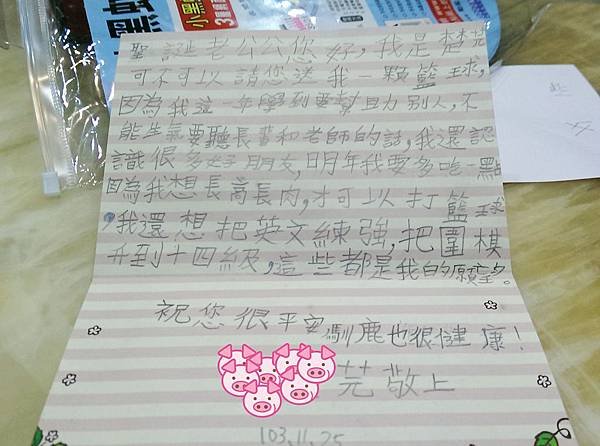 聖誕老公公您好,我是楚芫
可不可以請您送我一顆籃球,
因為我這一年學到要幫助別人,不
能生氣要聽長輩和老師的話,我還認
識很多好朋友,明年我要多吃一點
因為我想長高長肉,才可以打籃球
,我還想把英文練強,把圍棋
升到十四級,這些都是我的願望。
祝您很平安馴鹿也很健康!
芫敬上
103.11.25
小黑